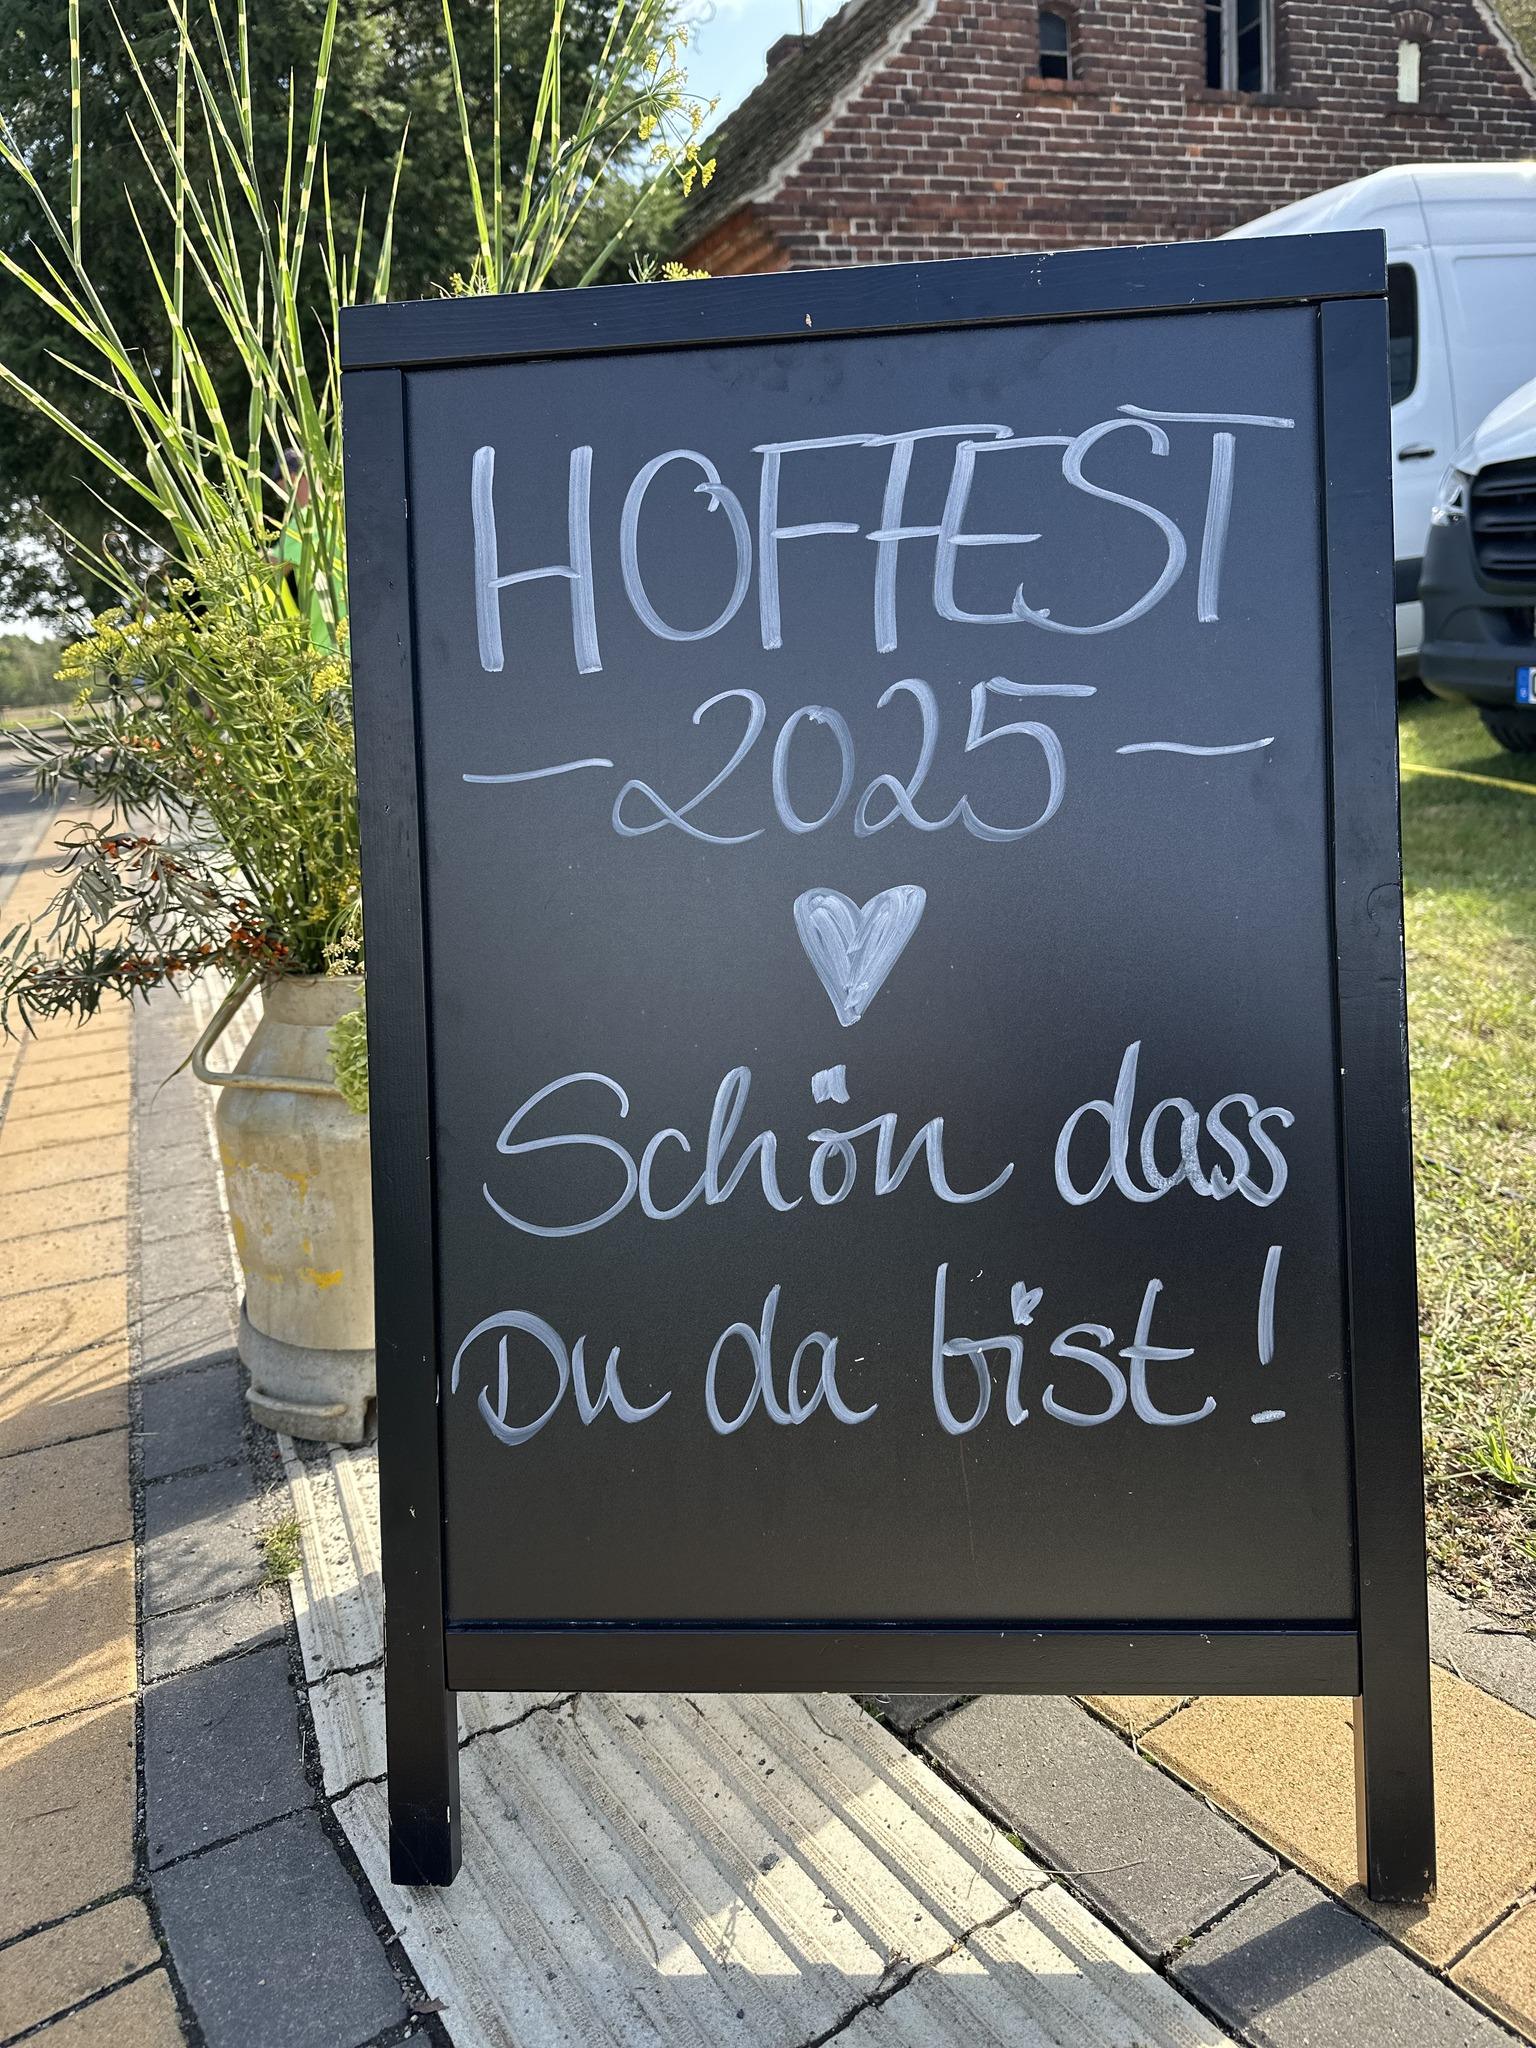 HOFFEST
- 2025 -
Schön dass
Du da bist!